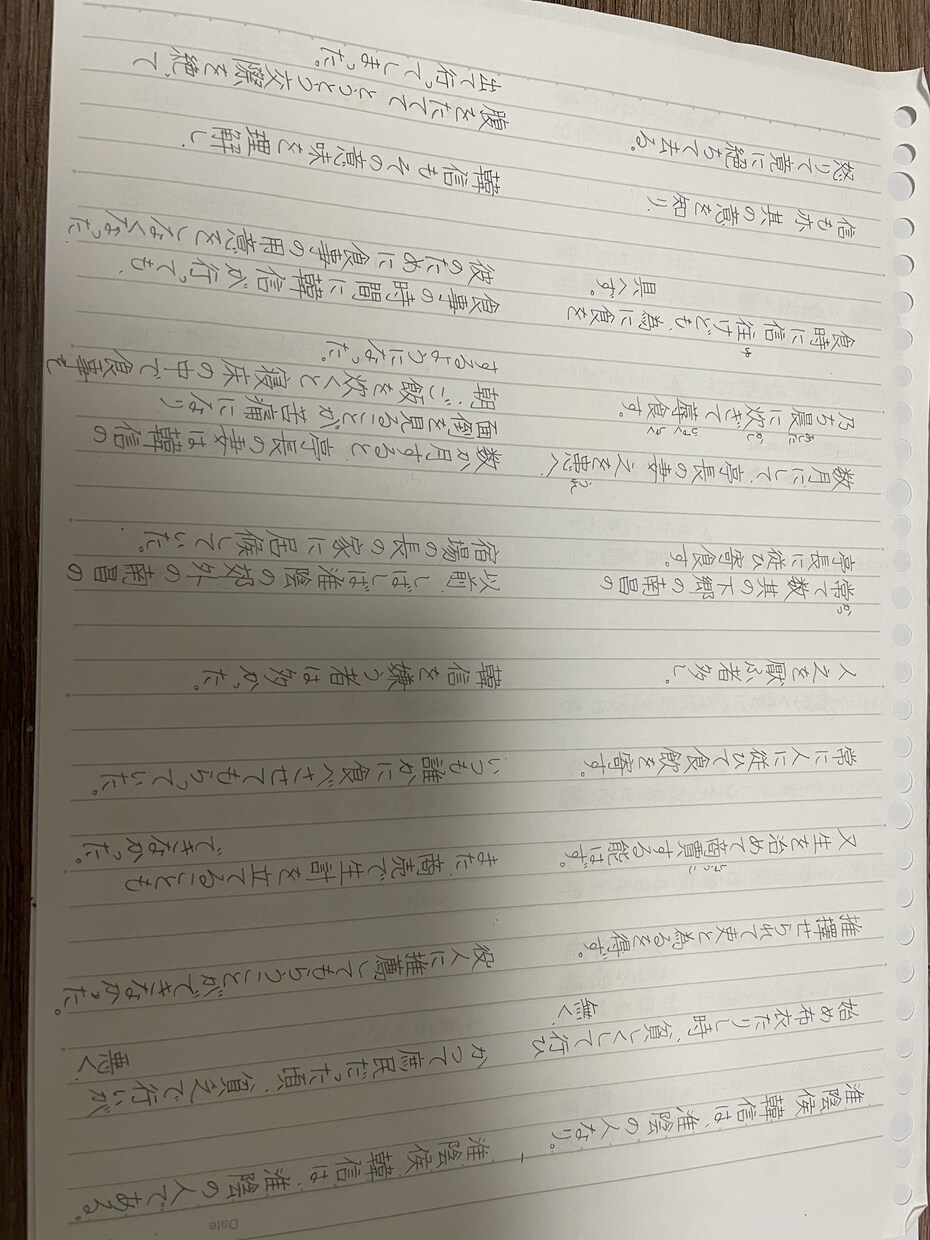 Date
淮陰侯 韓信は、淮陰の人なり。
淮陰侯 韓信は、淮陰の人である。
始め布衣たりし時、貧しくして行ひ
無く、
かつて庶民だった頃、貧乏で行いが
悪く、
推擇せられて吏と為るを得ず。
役人に推薦してもらうことができなかった。
又生を治めて商賈する能はず。
しょうこ
また、商売で生計を立てることも
できなかった。
常に人に従ひて食飲を寄す。
いつも誰かに食べさせてもらっていた。
人之を厭ふ者多し。
韓信を嫌う者は多かった。
かつ
常て数其の下郷の南昌の
亭長に従ひ寄食す。
以前、しばしば淮陰の郊外の南昌の
宿場の長の家に居候していた。
うれ
数月にして、亭長の妻 之を患へ、
あした かし じょくしょく
乃ち晨に炊ぎて蓐食す。
数か月すると、亭長の妻は韓信の
面倒を見ることが苦痛になり、
朝、ご飯を炊くと寝床の中で食事を
するようになった。
ゆ
食時に信往けども、為に食を
具へず。
食事の時間に韓信が行っても、
彼のために食事の用意をしなくなった。
信も亦 其の意を知り、
韓信もその意味を理解し、
怒りて竟に絶ちて去る。
腹をたてて とうとう交際を絶って
出て行ってしまった。